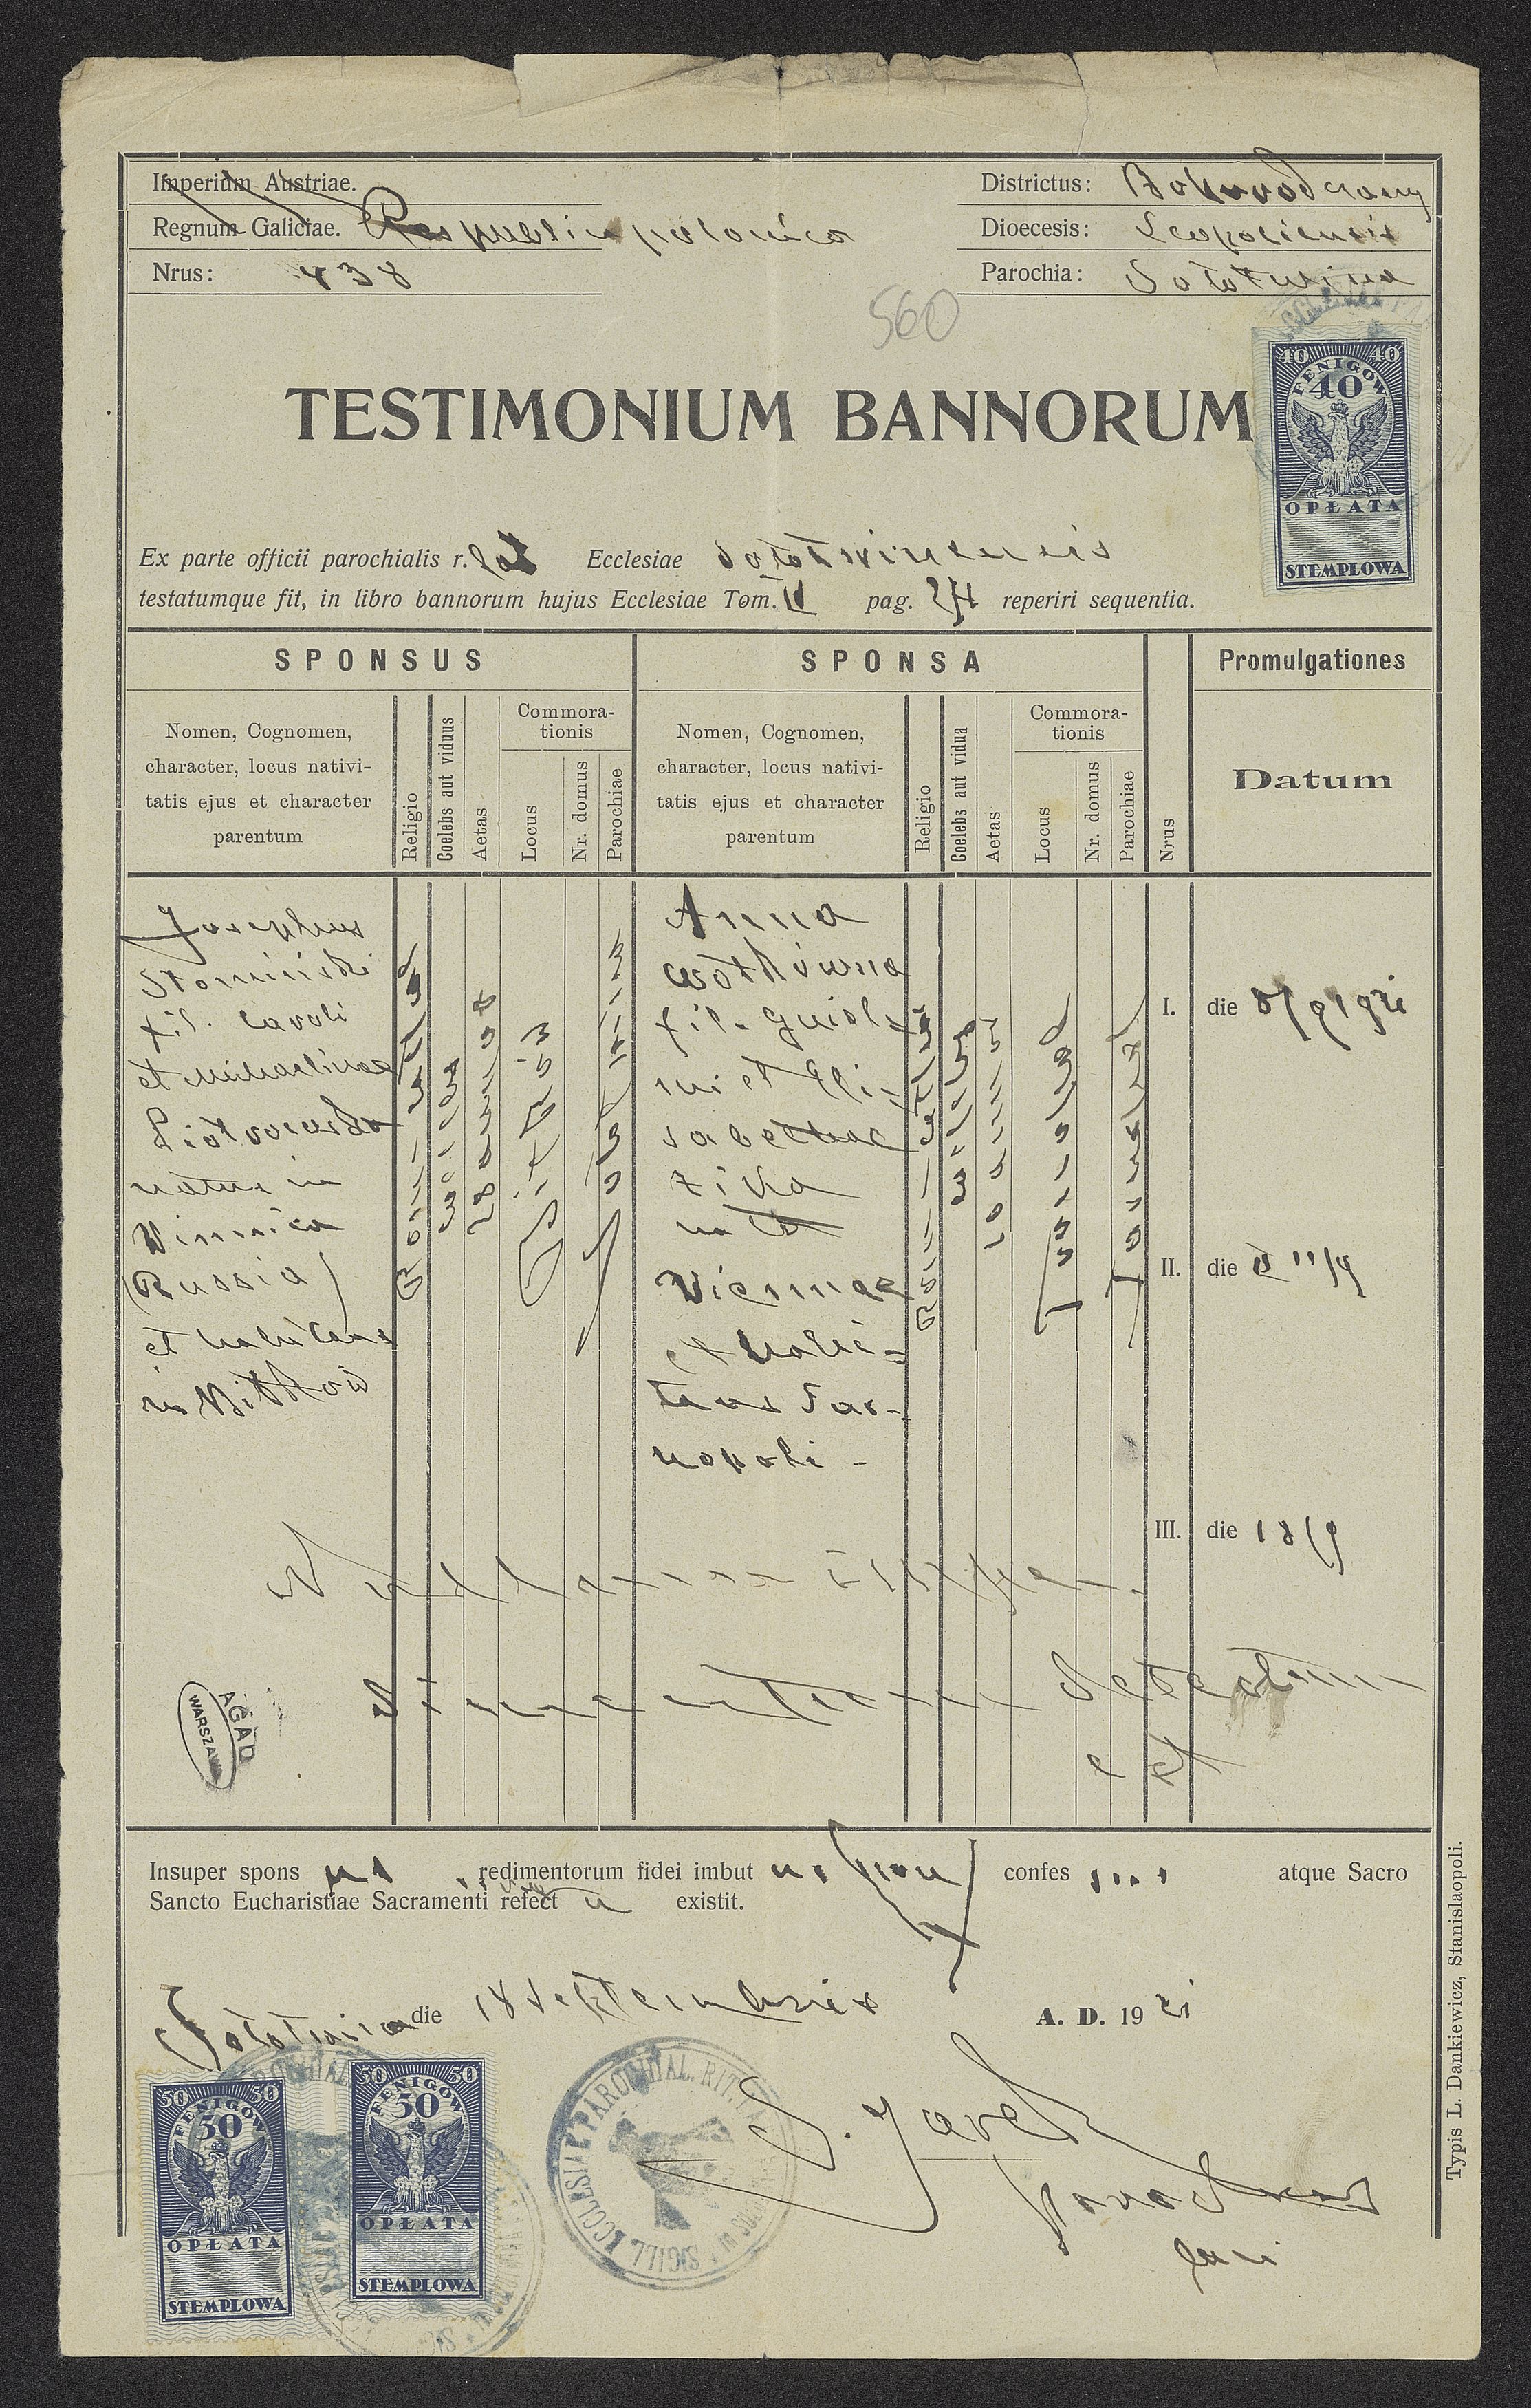 Imperium Austriae.
Regnum Galiciae. Respublica polonica
Nrus: 438
Districtus: Bohorodczany
Dioecesis: Leopoliensis
Parochia: Sołotwina
560
TESTIMONIUM BANNORUM
40 40
FENIGÓW
40
OPŁATA
STEMPLOWA
Ex parte officii parochialis r. lat Ecclesiae Sołotwinensis
testatumque fit, in libro bannorum hujus Ecclesiae Tom. II pag. reperiri sequentia.
SPONSUS
SPONSA
Promulgationes
Nomen, Cognomen,
character, locus nativi-
tatis ejus et character
parentum
Religio
Coelebs aut viduus
Aetas
Commora-
tionis
Locus
Nr. domus
Parochiae
Nomen, Cognomen,
character, locus nativi-
tatis ejus et character
parentum
Religio
Coelebs aut vidua
Aetas
Commora-
tionis
Locus
Nr. domus
Parochiae
Nrus
Datum
Josephus
Słomiński
fil. Caroli
et Michaelinae
natus in
Winnica
(Russia)
et habitans
in Bitków
Rom. cat.
28 annos
Bitków
Anna
fil. Guiel-
mi et Eli-
sabethae
nata
Viennae
et habi-
tans Tar-
nopoli -
Rom. cat.
I. die 8/9 1921
II. die 11/9
III. die 18/9
Nullumque impe-
dimentum detectum
est
AGAD
WARSZAWA
Insuper spons redimentorum fidei imbut confes atque Sacro
Sancto Eucharistiae Sacramenti refect existit.
Sołotwina die 18 Septembris A. D. 19 21
50 50
FENIGÓW
50
OPŁATA
STEMPLOWA
50 50
FENIGÓW
50
OPŁATA
STEMPLOWA
SIGILL. ECCLESIAE PAROCHIAL. RIT.
parochus
Typis L. Dankiewicz, Stanislaopoli.